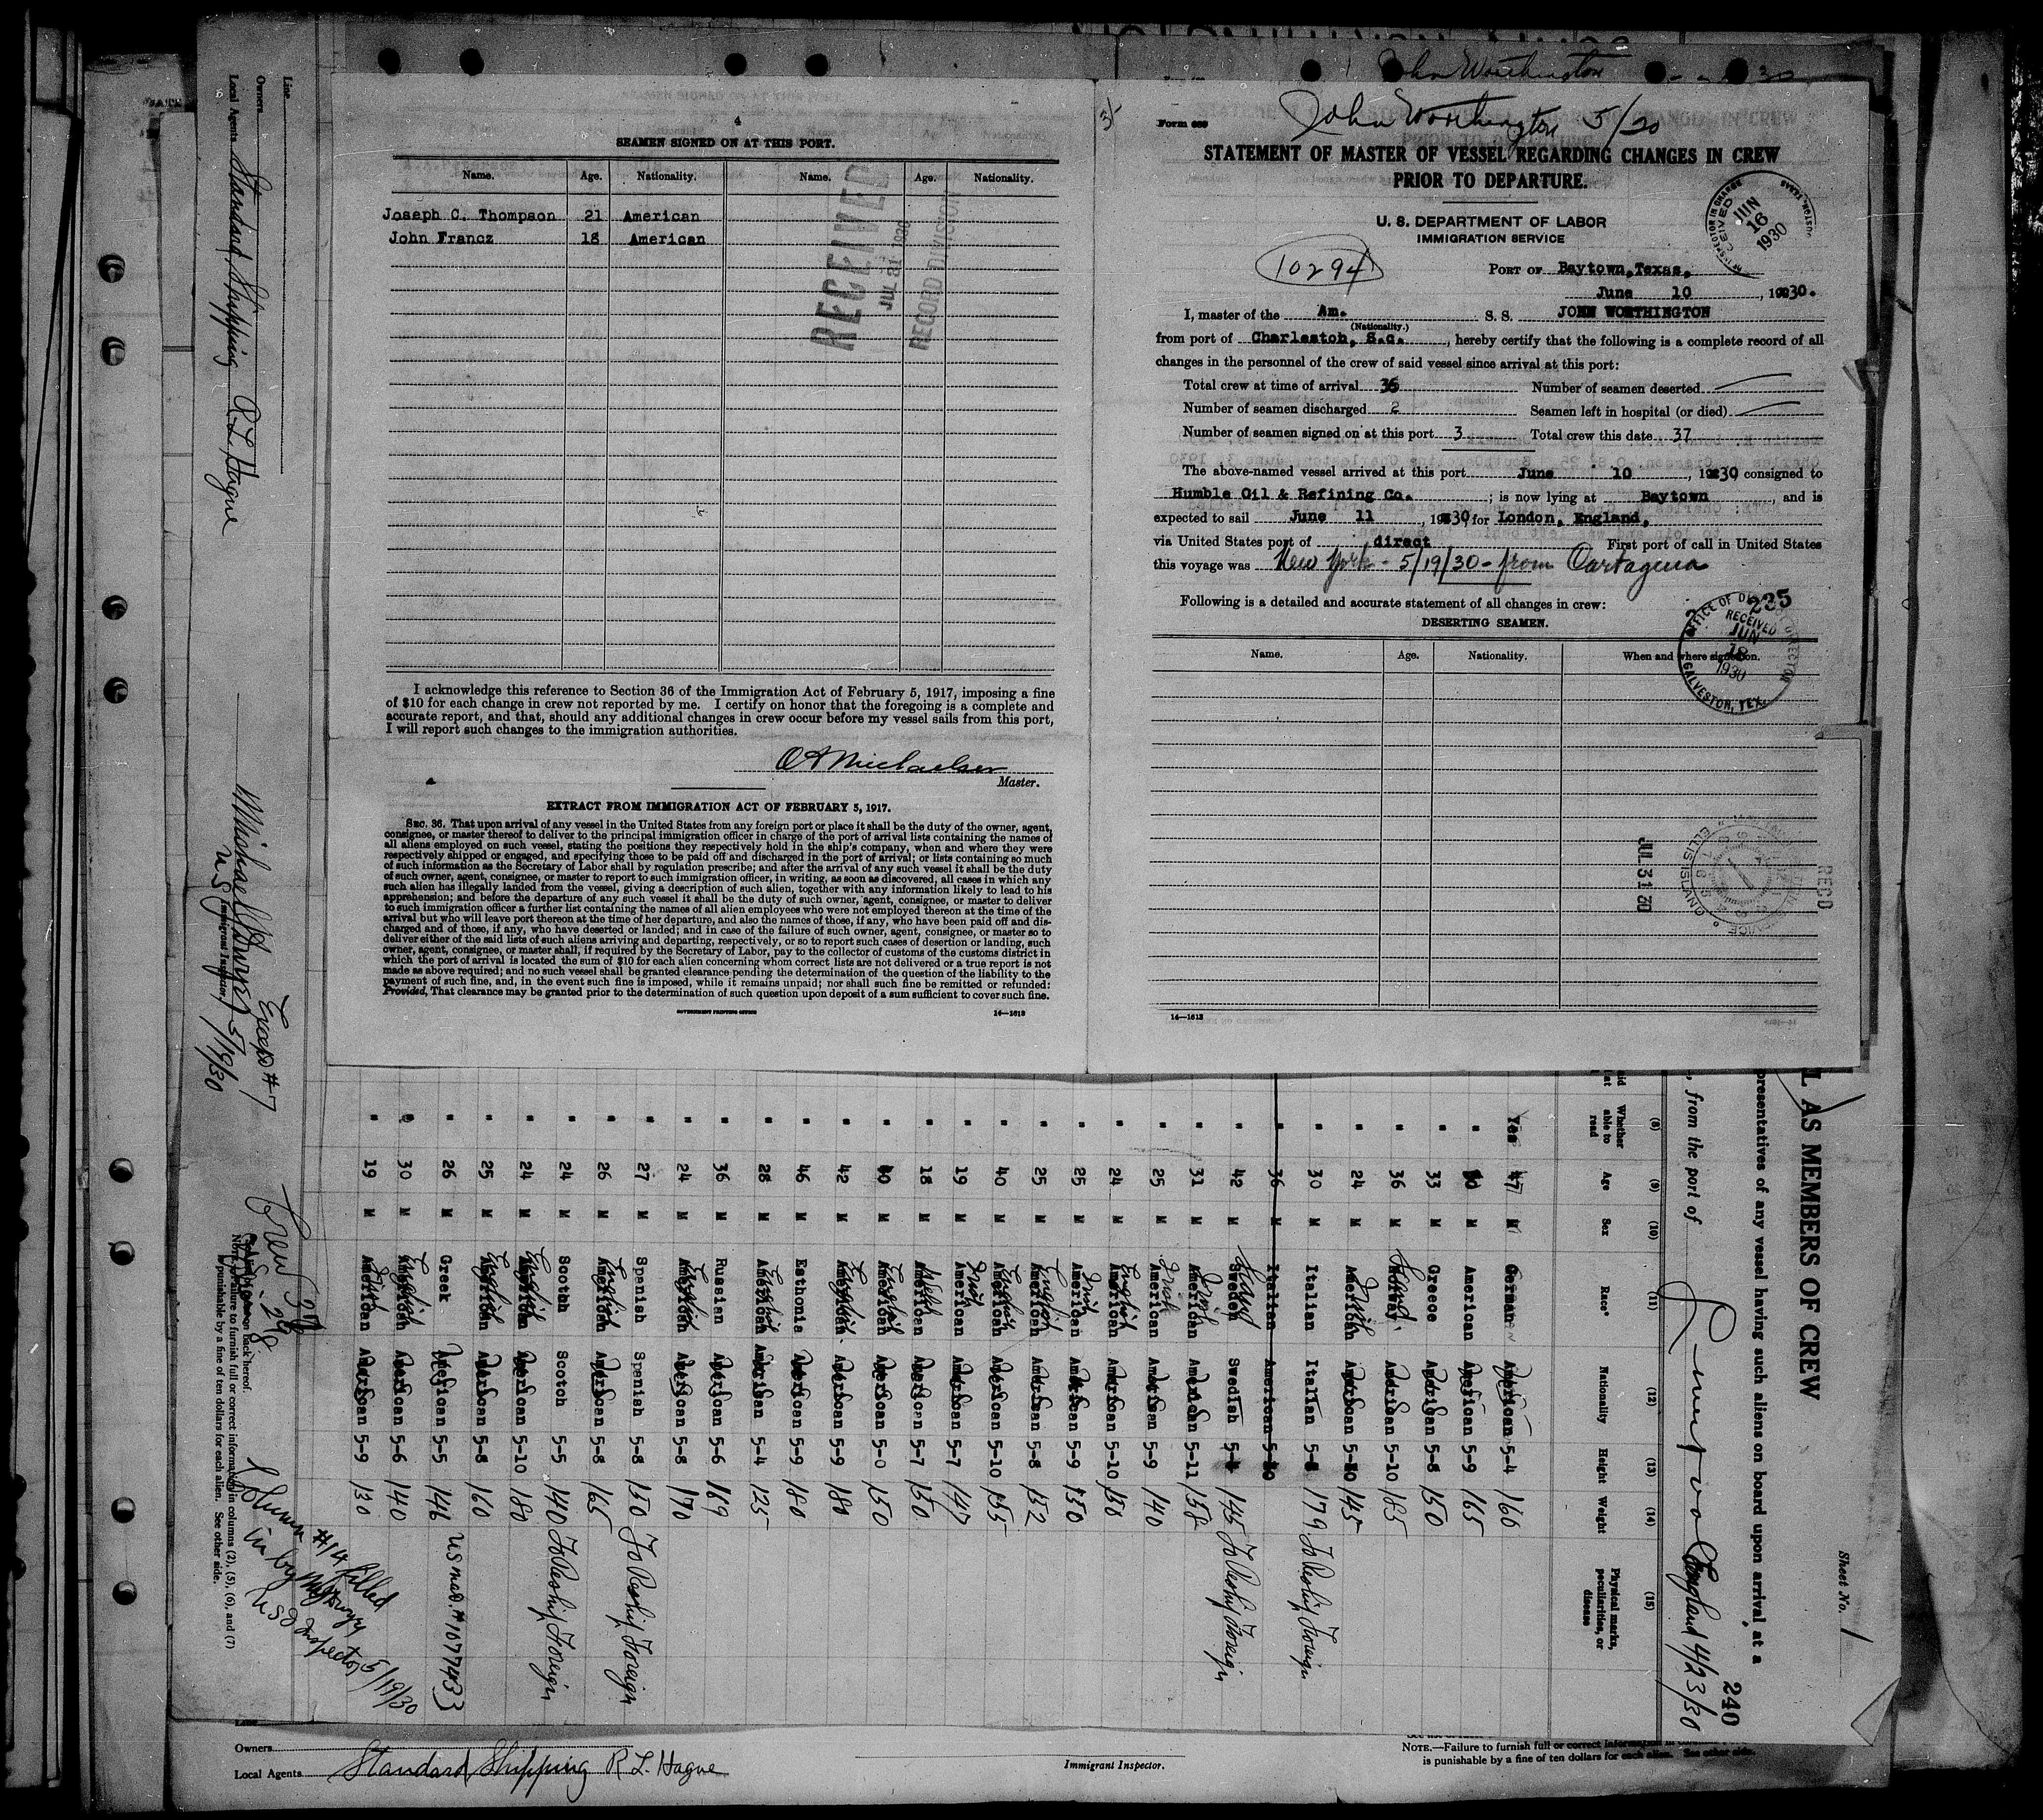 4
SEAMEN SIGNED ON AT THIS PORT.
Name. Age. Nationality. Name. Age. Nationality.
Joseph C. Thompson 21 American
John Francz 18 American
RECEIVED
JUL 31 1930
RECORD DIVISION
I acknowledge this reference to Section 36 of the Immigration Act of February 5, 1917, imposing a fine
of $10 for each change in crew not reported by me. I certify on honor that the foregoing is a complete and
accurate report, and that, should any additional changes in crew occur before my vessel sails from this port,
I will report such changes to the immigration authorities.
O A Michaelsen
Master.
EXTRACT FROM IMMIGRATION ACT OF FEBRUARY 5, 1917.
SEC. 36. That upon arrival of any vessel in the United States from any foreign port or place it shall be the duty of the owner, agent,
consignee, or master thereof to deliver to the principal immigration officer in charge of the port of arrival lists containing the names of
all aliens employed on such vessel, stating the positions they respectively hold in the ship's company, when and where they were
respectively shipped or engaged, and specifying those to be paid off and discharged in the port of arrival; or lists containing so much
of such information as the Secretary of Labor shall by regulation prescribe; and after the arrival of any such vessel it shall be the duty
of such owner, agent, consignee, or master to report to such immigration officer, in writing, as soon as discovered, all cases in which any
such alien has illegally landed from the vessel, giving a description of such alien, together with any information likely to lead to his
apprehension; and before the departure of any such vessel it shall be the duty of such owner, agent, consignee, or master to deliver
to such immigration officer a further list containing the names of all alien employees who were not employed thereon at the time of the
arrival but who will leave port thereon at the time of her departure, and also the names of those, if any, who have been paid off and dis-
charged and of those, if any, who have deserted or landed; and in case of the failure of such owner, agent, consignee, or master so to
deliver either of the said lists of such aliens arriving and departing, respectively, or so to report such cases of desertion or landing, such
owner, agent, consignee, or master shall, if required by the Secretary of Labor, pay to the collector of customs of the customs district in
which the port of arrival is located the sum of $10 for each alien concerning whom correct lists are not delivered or a true report is not
made as above required; and no such vessel shall be granted clearance pending the determination of the question of the liability to the
payment of such fine, and, in the event such fine is imposed, while it remains unpaid; nor shall such fine be remitted or refunded:
Provided, That clearance may be granted prior to the determination of such question upon deposit of a sum sufficient to cover such fine.
GOVERNMENT PRINTING OFFICE 14—1613
John Worthington
Form 689
John Worthington 5/20
STATEMENT OF MASTER OF VESSEL REGARDING CHANGES IN CREW
PRIOR TO DEPARTURE.
U. S. DEPARTMENT OF LABOR
IMMIGRATION SERVICE
JUN 16 1930
10294
PORT OF Baytown,Texas,
June 10, 1930.
I, master of the Am. S. S. JOHN WORTHINGTON
(Nationality.)
from port of Charleston, S.C., hereby certify that the following is a complete record of all
changes in the personnel of the crew of said vessel since arrival at this port:
Total crew at time of arrival 36 Number of seamen deserted
Number of seamen discharged 2 Seamen left in hospital (or died)
Number of seamen signed on at this port 3 Total crew this date 37
The above-named vessel arrived at this port June 10, 1930 consigned to
Humble Oil & Refining Co. ; is now lying at Baytown, and is
expected to sail June 11, 1930, for London, England,
via United States port of direct First port of call in United States
this voyage was New York - 5/19/30 - from Cartagena
Following is a detailed and accurate statement of all changes in crew:
DESERTING SEAMEN.
235
RECEIVED
JUN 18 1930
GALVESTON, TEX.
Name. Age. Nationality. When and where signed on.
JUL 31 30
REC'D
14—1613
L AS MEMBERS OF CREW
Sheet No. 1
240
presentatives of any vessel having such aliens on board upon arrival at a
, from the port of England 4/23/30
(8) (9) (10) (11) (12) (13) (14) (15)
Whether able to read Age Sex Race* Nationality Height Weight Physical marks, peculiarities, or disease
Yes 47 M German American 5-4 166
" M American American 5-9 165
" 33 M Greece American 5-8 150
" 36 M Scand. American 5-10 185
" 24 M American 5-10 145
" 30 M Italian Italian 5-8 179 To Reship Foreign
" 36 M Italian American 5-10
" 42 M Sweden Swedish 5-4 145 To Reship Foreign
" 31 M Irish American American 5-11 158
" 25 M Irish American American 5-9 140
" 24 M English American American 5-10 150
" 25 M Irish American American 5-9 150
" 25 M English American American 5-8 152
" 40 M English American American 5-10 155
" 19 M Irish American American 5-7 147
" 18 M Welsh American American 5-7 150
" 40 M English American American 5-0 150
" 42 M English American American 5-9 180
" 46 M Esthonia American 5-9 180
" 28 M English American American 5-4 125
" 36 M Russian American 5-6 169
" 24 M English American American 5-8 170
" 27 M Spanish Spanish 5-8 150 To Reship Foreign
" 26 M English American American 5-8 165
" 24 M Scotch Scotch 5-5 140 To Reship Foreign
" 24 M English American American 5-10 180
" 25 M English American American 5-8 160
" 26 M Greek American 5-5 146 US Nat. # 1077483
" 30 M English American American 5-6 140
" 19 M American American 5-9 130
Line
Owners
Local Agents Standard Shipping R L Hague
Except #7
5/19/30
U S Immigrant Inspector
Crew 30
NOTE.—Failure to furnish full or correct information in columns (2), (5), (6), and (7)
is punishable by a fine of ten dollars for each alien. See other side.
Column #14 filled
in by
US Inspector 5/19/30
Owners
Local Agents Standard Shipping R L. Hague
Immigrant Inspector.
NOTE.—Failure to furnish full or correct information in
is punishable by a fine of ten dollars for each alien. See other side.